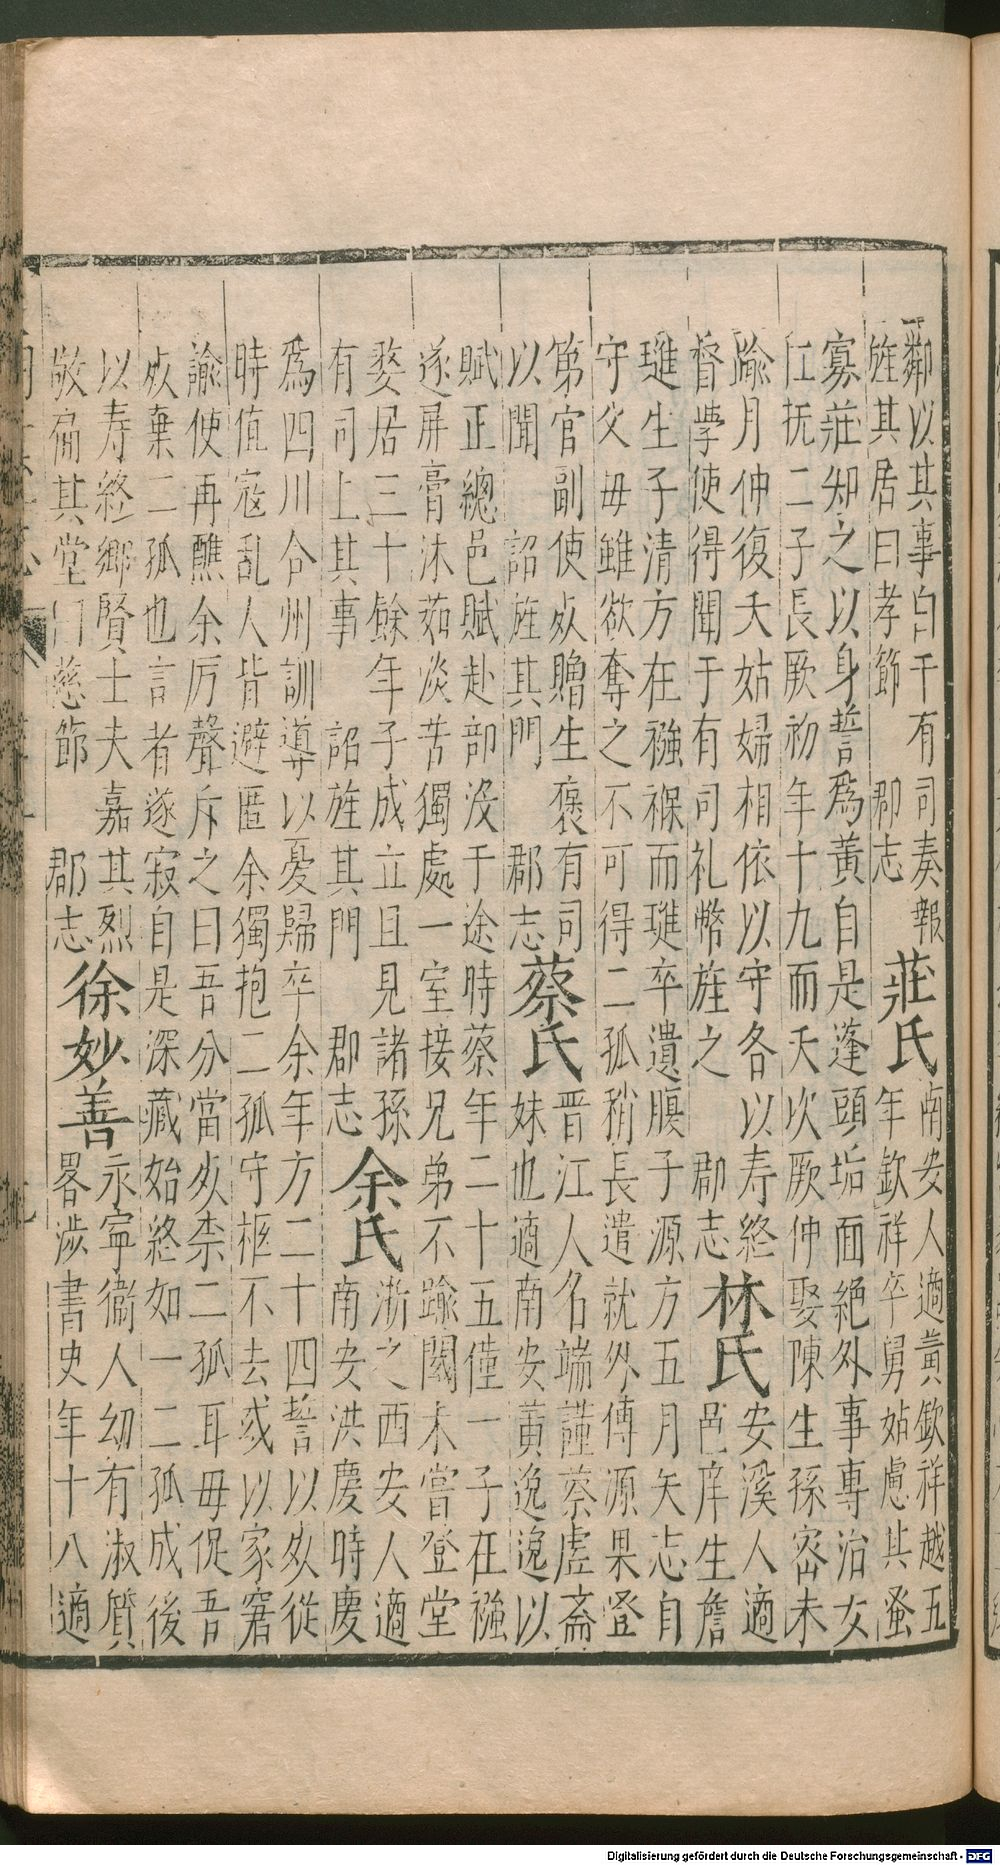 鄰以其事白于有司奏報
旌其居曰孝節 郡志
莊氏
南安人適黃欽祥越五
年欽祥卒舅姑慮其蚤
寡莊知之以身誓爲黃自是蓬頭垢面絶外事專治女
红抚二子長厥初年十九而夭次厥仲娶陳生孫宻未
踰月仲復夭姑婦相依以守各以寿終
督學使得聞于有司礼幣旌之 郡志
林氏
安溪人適
邑庠生詹
璡生子清方在襁褓而璡卒遺腹子源方五月矢志自
守父毋雖欲奪之不可得二孤稍長遣就外傅源果登
第官副使㚢贈生褒有司
以聞 詔旌其門 郡志
蔡氏
晋江人名端謹蔡虗斎
妹也適南安黃逸逸以
賦正總邑賦赴部没于途時蔡年二十五僅一子在襁
遂屏膏沐茹淡苦獨處一室接兄弟不踰閾未嘗登堂
婺居三十餘年子成立且見諸孫
有司上其事 詔旌其門 郡志
余氏
淅之西安人適
南安洪慶時慶
爲四川合州訓導以憂歸卒余年方二十四誓以㚢從
時值寇乱人皆避匿余獨抱二孤守柩不去或以家窘
諭使再醮余厉聲斥之曰吾分當㚢柰二孤耳毋促吾
㚢棄二孤也言者遂寂自是深藏始終如一二孤成後
以寿終鄉賢士夫嘉其烈
敬扁其堂曰慈節 郡志
徐妙善
永寧衞人幼有淑質
畧涉書史年十八適
Digitalisierung gefördert durch die Deutsche Forschungsgemeinschaft - DFG